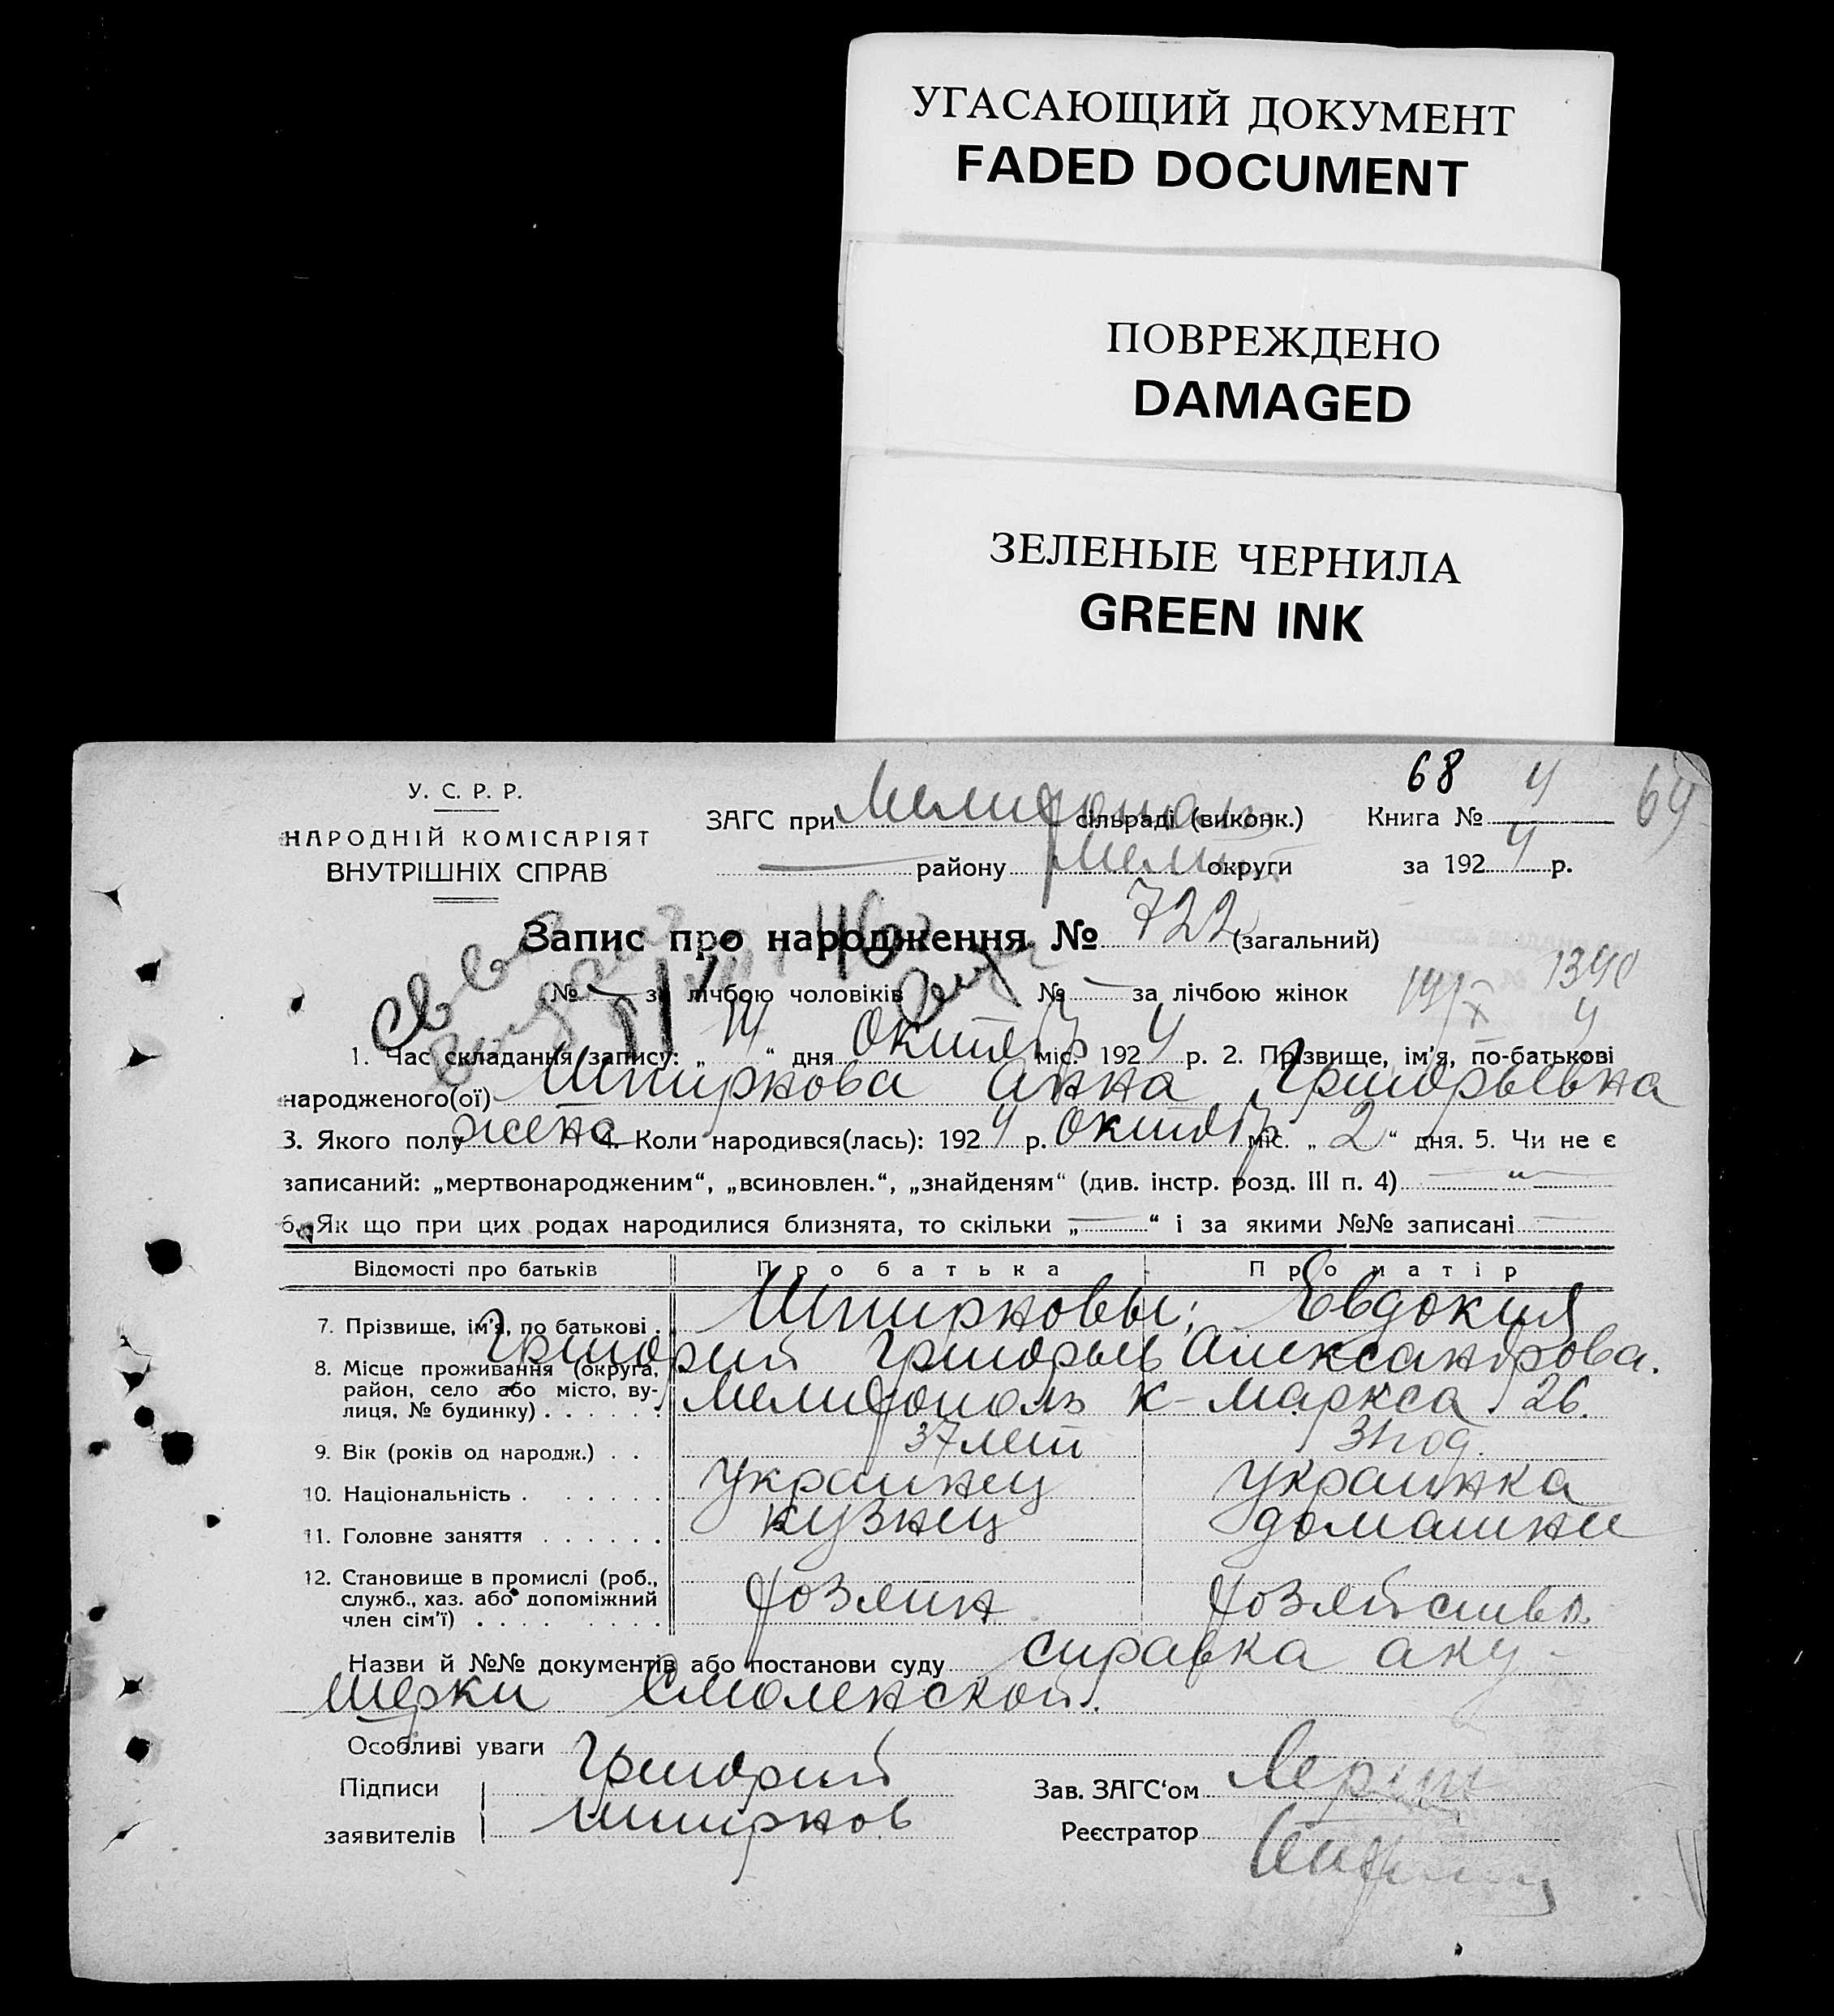 УГАСАЮЩИЙ ДОКУМЕНТ
FADED DOCUMENT
ПОВРЕЖДЕНО
DAMAGED
ЗЕЛЕНЫЕ ЧЕРНИЛА
GREEN INK
68 4 69
У. С. Р. Р.
НАРОДНІЙ КОМІСАРІЯТ
ВНУТРІШНІХ СПРАВ
ЗАГС при Мелитополь сільраді (виконк.) Книга №
району Мелит округи за 1924 р.
Запис про народження № 722 (загальний)
№ — за лічбою чоловіків № — за лічбою жінок
1340
1. Час складання запису: „14“ дня Октябр міс. 1924 р. 2. Прізвище, ім'я, по-батькові
народженого(ої) Шпирнова Анна Григорьевна
3. Якого полу жена 4. Коли народився(лась): 1924 р. Октябр міс. „2“ дня. 5. Чи не є
записаний: „мертвонародженим“, „всиновлен.“, „знайденям“ (див. інстр. розд. III п. 4) — " —
6. Як що при цих родах народилися близнята, то скільки „—“ і за якими №№ записані —
Відомості про батьків Про батька Про матір
7. Прізвище, ім'я, по батькові . Шпирновы; Евдокия
Григорий Григорьев Александрова.
8. Місце проживання (округа,
район, село або місто, ву-
лиця, № будинку) . . . . . . Мелитополь К-Маркса 26.
9. Вік (років од народж.) . . 37 лет 31 год.
10. Національність . . . . . . Украинец Украинка
11. Головне заняття . . . . . . кузнец домашне
12. Становище в промислі (роб.,
служб., хаз. або допоміжний
член сім'ї) . . . . . . . . Хозяин Хозяйство
Назви й №№ документів або постанови суду справка аку-
шерки Смоленской.
Особливі уваги
Підписи Григорий Зав. ЗАГС'ом
заявителів Шпирнов Реєстратор